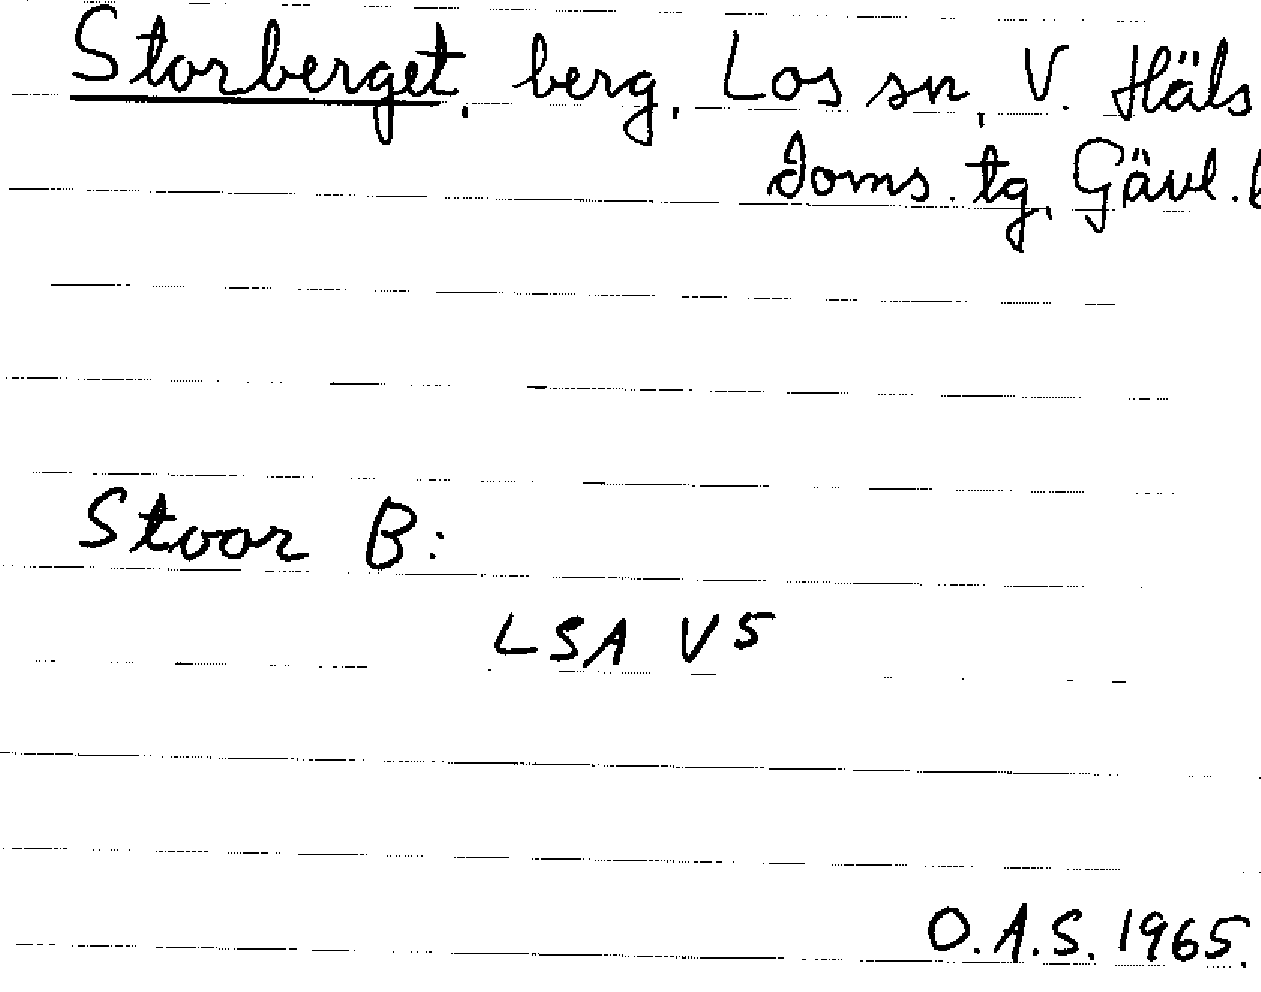 Storberget, berg, Los sn, V. Häls
doms. tg, Gävl. l
Stoor B:
LSA V5
O.A.S. 1965.